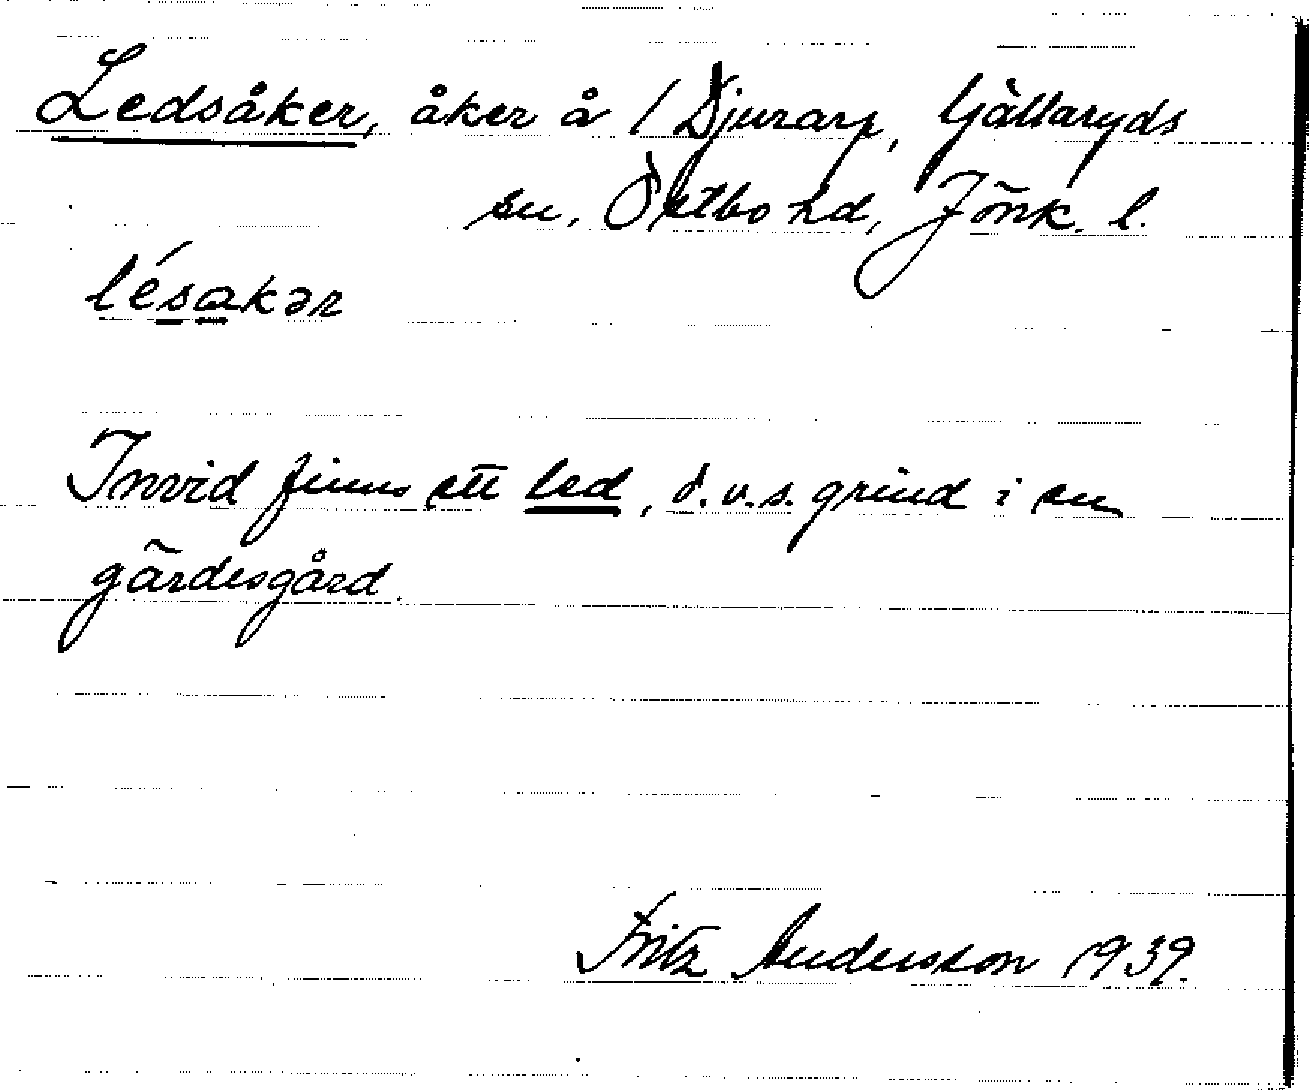 Ledsåker, åker å / Djurarp, Gällaryds
sn, Östbo hd, Jönk. l.
lésakər
Invid finns ett led, d.v.s. grind i en
gärdesgård.
Fritz Andersson 1939.